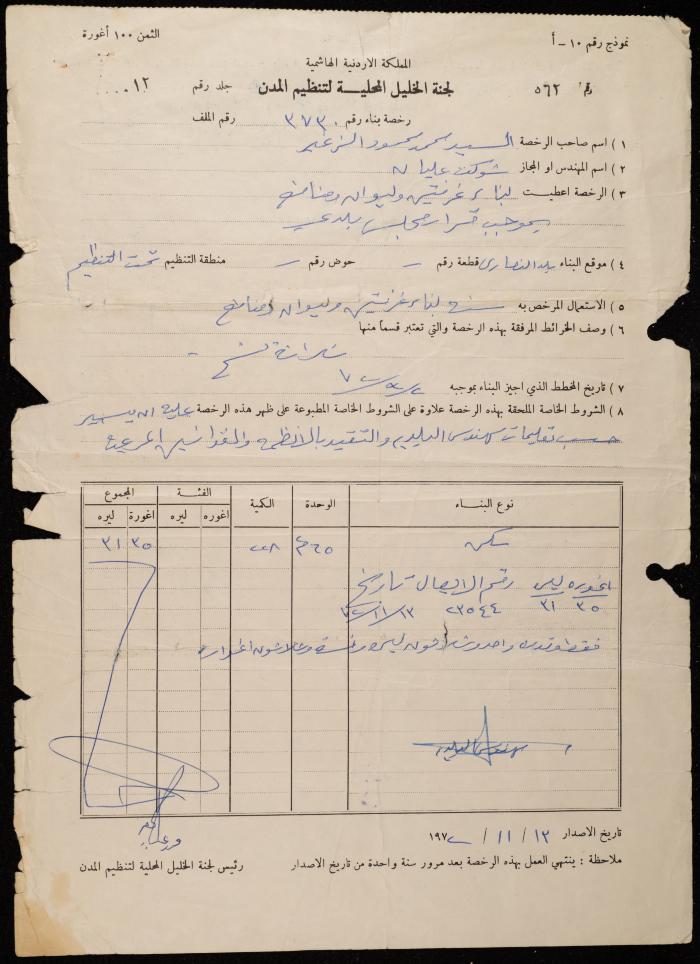 نموذج رقم ١٠ - أ
الثمن ١٠٠ أغورة
المملكة الاردنية الهاشمية
رقم ٥٦٢ لجنة الخليل المحليـــة لتنظيم المدن جلد رقم ٠١٢
رخصة بناء رقم ٣٧٣٠ رقم الملف
١ ) اسم صاحب الرخصة السيد محمد محمود الزعتر
٢ ) اسم المهندس او المجاز شوكت عليان
٣ ) الرخصة اعطيت لبناء غرفتين وليوان ومنافع
بموجب قرار مجلس بلدي
٤ ) موقع البناء بلد النصارى قطعة رقم - حوض رقم - منطقة التنظيم تحت التنظيم
٥ ) الاستعمال المرخص به لبناء غرفتين وليوان ومنافع
٦ ) وصف الخرائط المرفقة بهذه الرخصة والتي تعتبر قسماً منها
نسخ
٧ ) تاريخ المخطط الذي اجيز البناء بموجبه
٨ ) الشروط الخاصة الملحقة بهذه الرخصة علاوة على الشروط الخاصة المطبوعة على ظهر هذه الرخصة عليه ان يسير
حسب تعليمات مهندس البلدية والتقيد بالانظمة والقوانين المرعية
نوع البناء الوحدة الكمية الفئـــة المجموع
اغوره ليره اغورة ليره
سكن ٦٥م ٣٥ ٣١
اغوره ليره رقم الايصال تاريخ
٣٥ ٣١ ٢٣٥٤٤ ٧٢/١١/١٣
فقط وقدره واحد وثلاثون ليره وخمسة وثلاثون اغورة
مهندس البلدية
تاريخ الاصدار ١٣ / ١١ / ١٩٧٢
ملاحظة : ينتهي العمل بهذه الرخصة بعد مرور سنة واحدة من تاريخ الاصدار
رئيس لجنة الخليل المحلية لتنظيم المدن